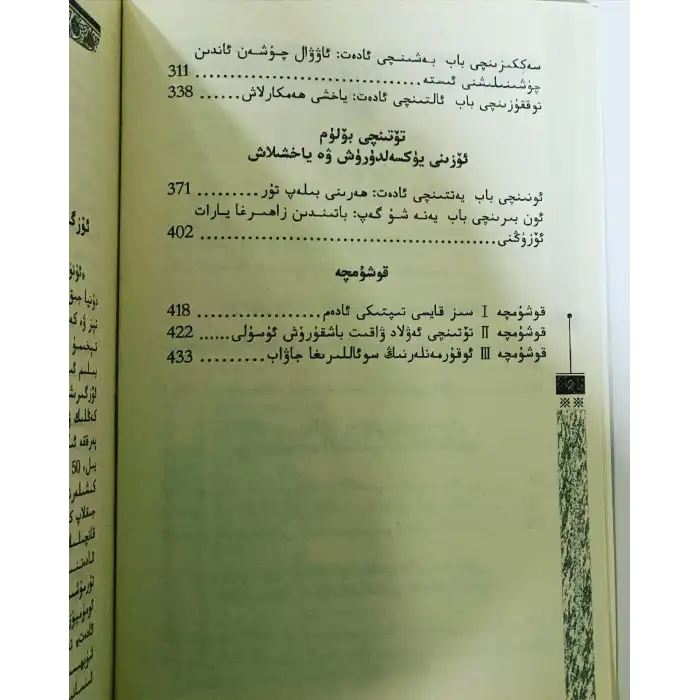 سەككىزىنچى باب بەشىنچى ئادەت: ئاۋۋال چۈشەن ئاندىن
چۈشىنىلىشنى ئىستە........................ 311
توققۇزىنچى باب ئالتىنچى ئادەت: ياخشى ھەمكارلاش...... 338
تۆتىنچى بۆلۈم
ئۆزىنى يۈكسەلدۈرۈش ۋە ياخشىلاش
ئونىنچى باب يەتتىنچى ئادەت: ھەرىنى بىلەپ تۇر......... 371
ئون بىرىنچى باب يەنە شۇ گەپ: باتىندىن زاھىرغا يارات
ئۆزۈڭنى................................ 402
قوشۇمچە
قوشۇمچە Ⅰ سىز قايسى تىپتىكى ئادەم.................. 418
قوشۇمچە Ⅱ تۆتىنچى ئەۋلاد ۋاقىت باشقۇرۇش ئۇسۇلى...... 422
قوشۇمچە Ⅲ ئوقۇرمەنلەرنىڭ سوئاللىرىغا جاۋاب......... 433
2
دۇنيا
نىڭ ۋە
بىلىم
پەرققە
يىل، 50